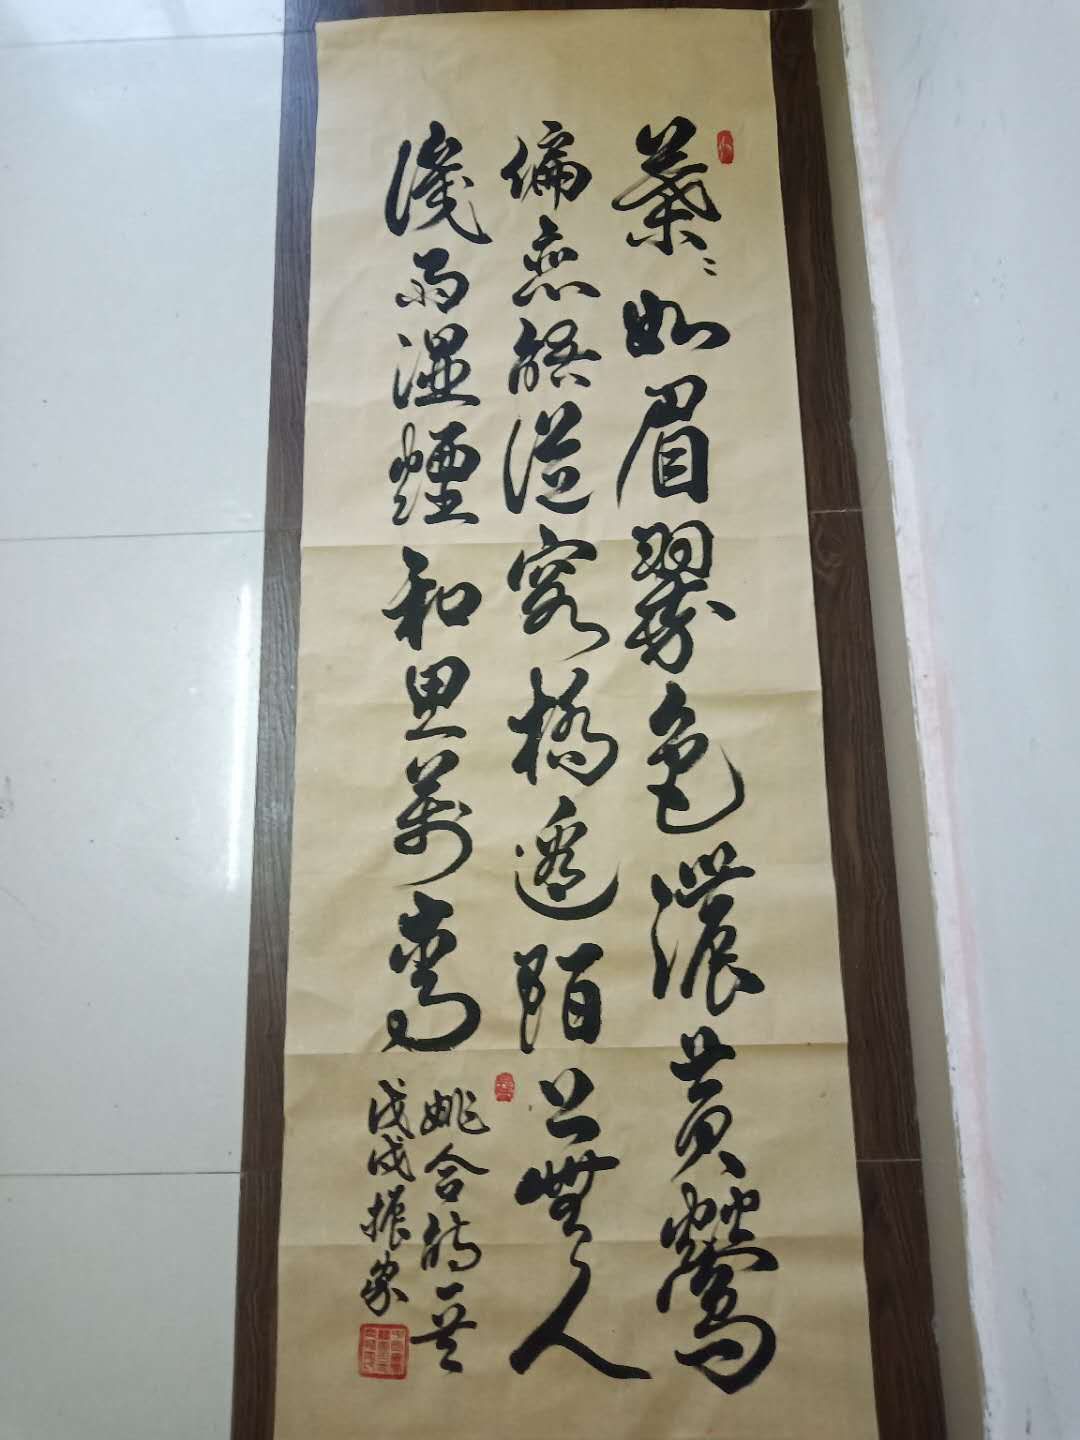 葉〻如眉翠色濃黃鶯
偏戀語從容橋邊陌上無人
識雨濕煙和思萬重
姚合詩一首
戊戌振家